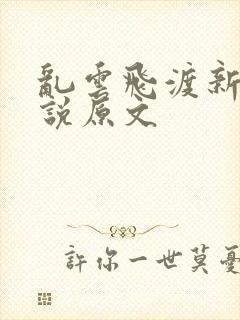 亂雲飛渡新
說原文
許你一世莫憂